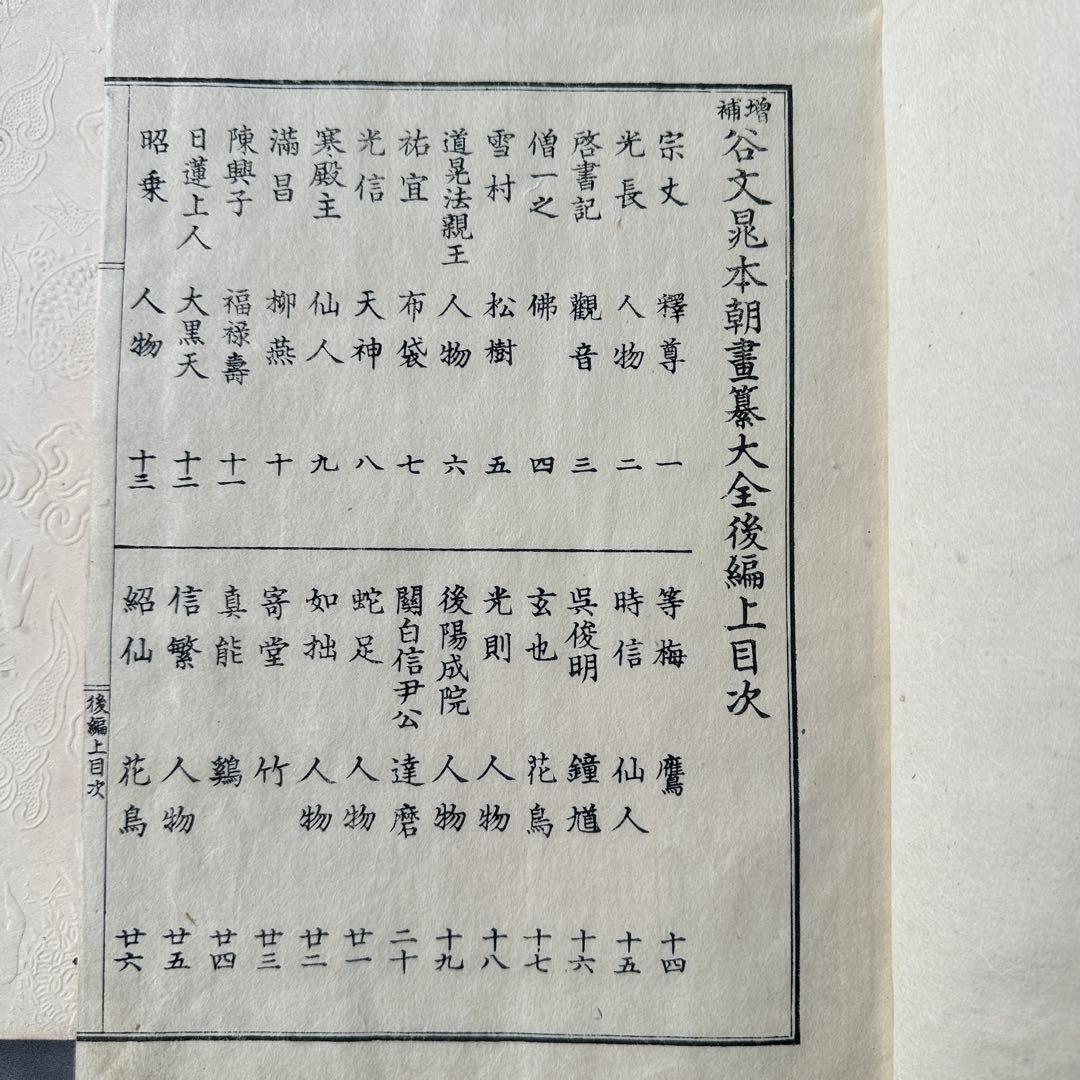 增補谷文晁本朝畫纂大全後編上目次
宗丈 釋尊 一
光長 人物 二
啓書記 觀音 三
僧一之 佛 四
雪村 松樹 五
道晃法親王 人物 六
祐宜 布袋 七
光信 天神 八
寒殿主 仙人 九
滿昌 柳燕 十
陳興子 福祿壽 十一
日蓮上人 大黑天 十二
昭乗 人物 十三
等梅 鷹 十四
時信 仙人 十五
吳俊明 鐘馗 十六
玄也 花鳥 十七
光則 人物 十八
後陽成院 人物 十九
關白信尹公 達磨 二十
蛇足 人物 廿一
如拙 人物 廿二
寄堂 竹 廿三
真能 鷄 廿四
信繁 人物 廿五
紹仙 花鳥 廿六
後編上目次